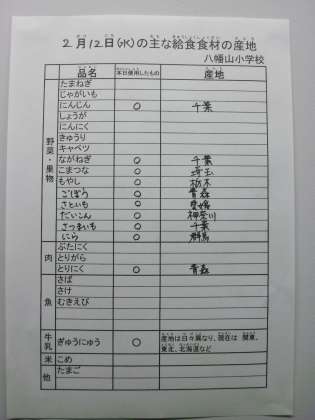 2月12日(水)の主な給食食材の産地
八幡山小学校
品名 本日使用したもの 産地
野菜・果物
たまねぎ
じゃがいも
にんじん ○ 千葉
しょうが
にんにく
きゅうり
キャベツ
ながねぎ ○ 千葉
こまつな ○ 埼玉
もやし ○ 栃木
ごぼう ○ 青森
さといも ○ 愛媛
だいこん ○ 神奈川
さつまいも ○ 千葉
にら ○ 群馬
肉
ぶたにく
とりがら
とりにく ○ 青森
魚
さば
さけ
むきえび
牛乳 ぎゅうにゅう ○ 産地は日々異なり、現在は 関東、
東北、北海道など
米 こめ
他 たまご